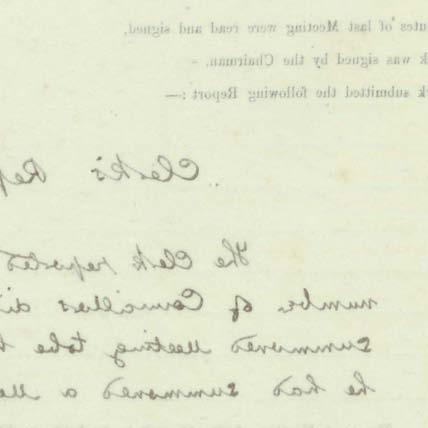 utes of last Meeting were read and signed.
k was signed by the Chairman. -
rk submitted the following Report :—
Clerk's Rep
The Clerk reported
number of Councillors di
summoned Meeting to be
he had summoned a Me